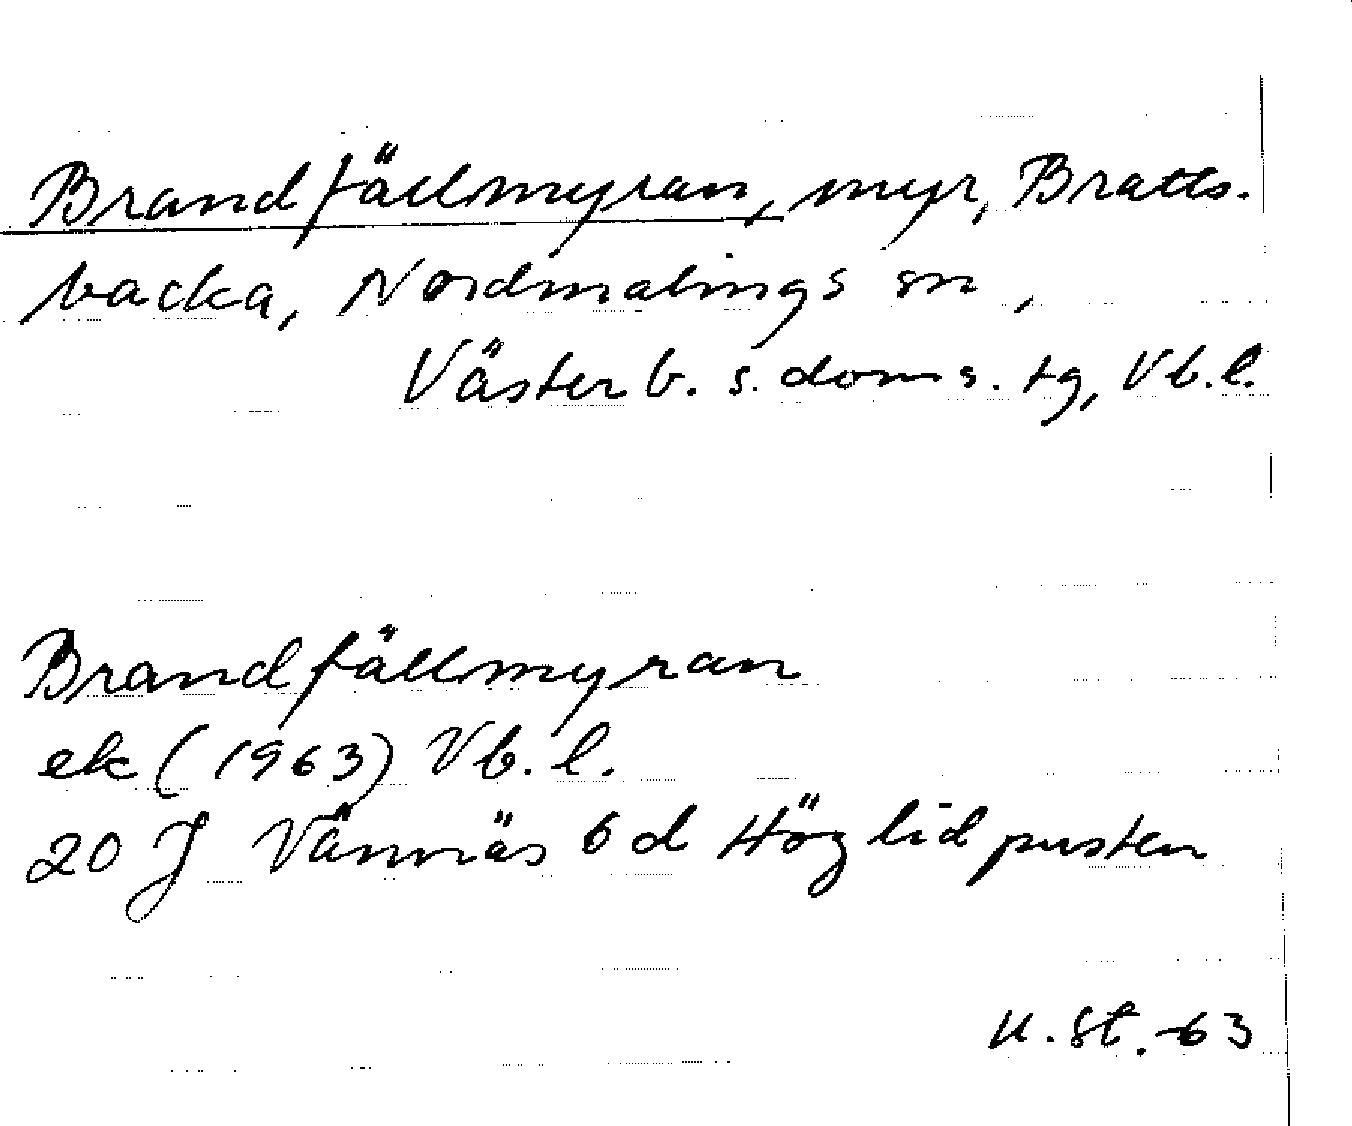 Brandfällmyran, myr, Bratts-
backa, Nordmalings sn,
Västerb. s. doms. tg, Vb. l.
Brandfällmyran
ek (1963) Vb. l.
20 J Vännäs 6 d Höglidpusten
U. St. -63